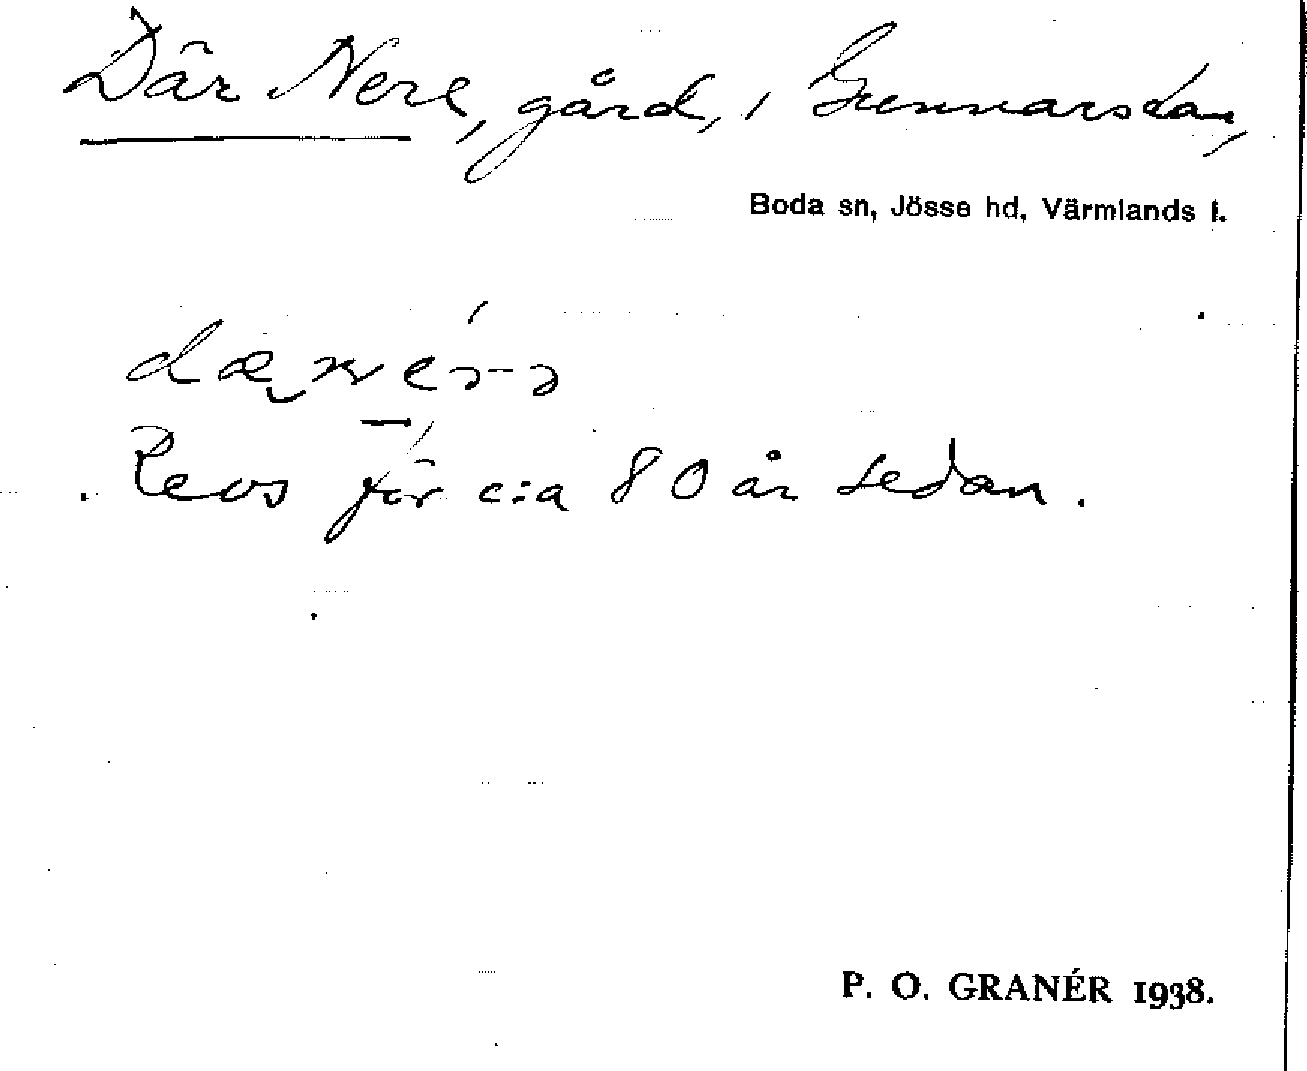 Där Nere, gård, i Gunnarsdan,
Boda sn, Jösse hd, Värmlands l.
Revs för c:a 80 år sedan.
P. O. GRANÉR 1938.